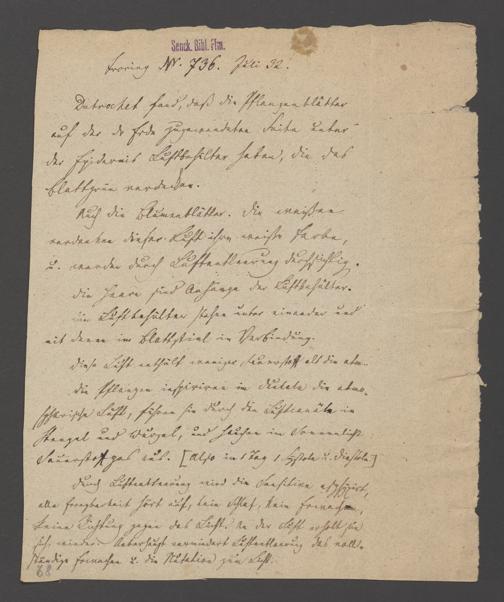 Senck. Bibl. Ffm.
Froriep Nr. 736. Juli 32.
Dutrochet fand, daß die Pflanzenblätter
auf der der Erde zugewendeten Seite unter
der Epidermis Luftbehälter haben, die das
Blattgrün verdecken.
Auch die Blumenblätter. Die weißen
verdanken dieser Luft ihre weiße Farbe,
u. werden durch Luftentleerung durchsichtig.
Die Haare sind Anhänge der Luftbehälter.
Die Luftbehälter stehen unter einander und
mit denen im Blattstiel in Verbindung.
Diese Luft enthält weniger Sauerstoff als die atm.
Die Pflanzen inspiriren im Dunkeln die atmo-
sphärische Luft, führen sie durch die Luftcanäle in
Stengel und Wurzel, und hauchen im Sonnenlicht
Sauerstoffgas aus. [Also in 1 Tag 1 Systole u. Diastole]
Durch Luftentleerung wird die Sensitive asphyxirt,
alle Erregbarkeit hört auf, kein Schlaf, kein Erwachen,
keine Richtung gegen das Licht. An der Luft erholt sie
sich wieder. Ueberhaupt vermindert Luftentleerung das voll-
ständige Erwachen u. die Nutation zum Licht.
68